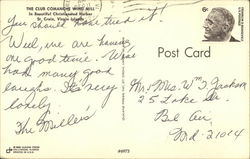 THE CLUB COMANCHE WIND MILL
In Beautiful Christiansted Harbor
St. Croix, Virgin Islands
You should have tried it.
Well, we are having
one good time. Have
had many good
laughs. Its very
lovely
The Millers
Post Card
6¢
Mr & Mrs. Wm T Jackson
25 Lake Dr.
Bel Air,
Md. 21014